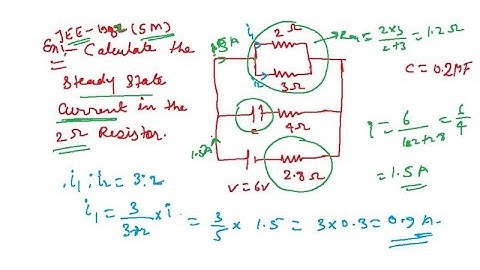 JEE-1982 (5M)
Ex:- Calculate the
Steady State
Current in the
2Ω Resistor.
1.5A
i1
2Ω
i2
3Ω
Req = 2×3/2+3 = 1.2Ω
C = 0.2μF
C
4Ω
1.5A
2.8Ω
V = 6V
i = 6/1.2+2.8 = 6/4
= 1.5A
i1 : i2 = 3:2
i1 = 3/3+2 × i = 3/5 × 1.5 = 3×0.3 = 0.9A.